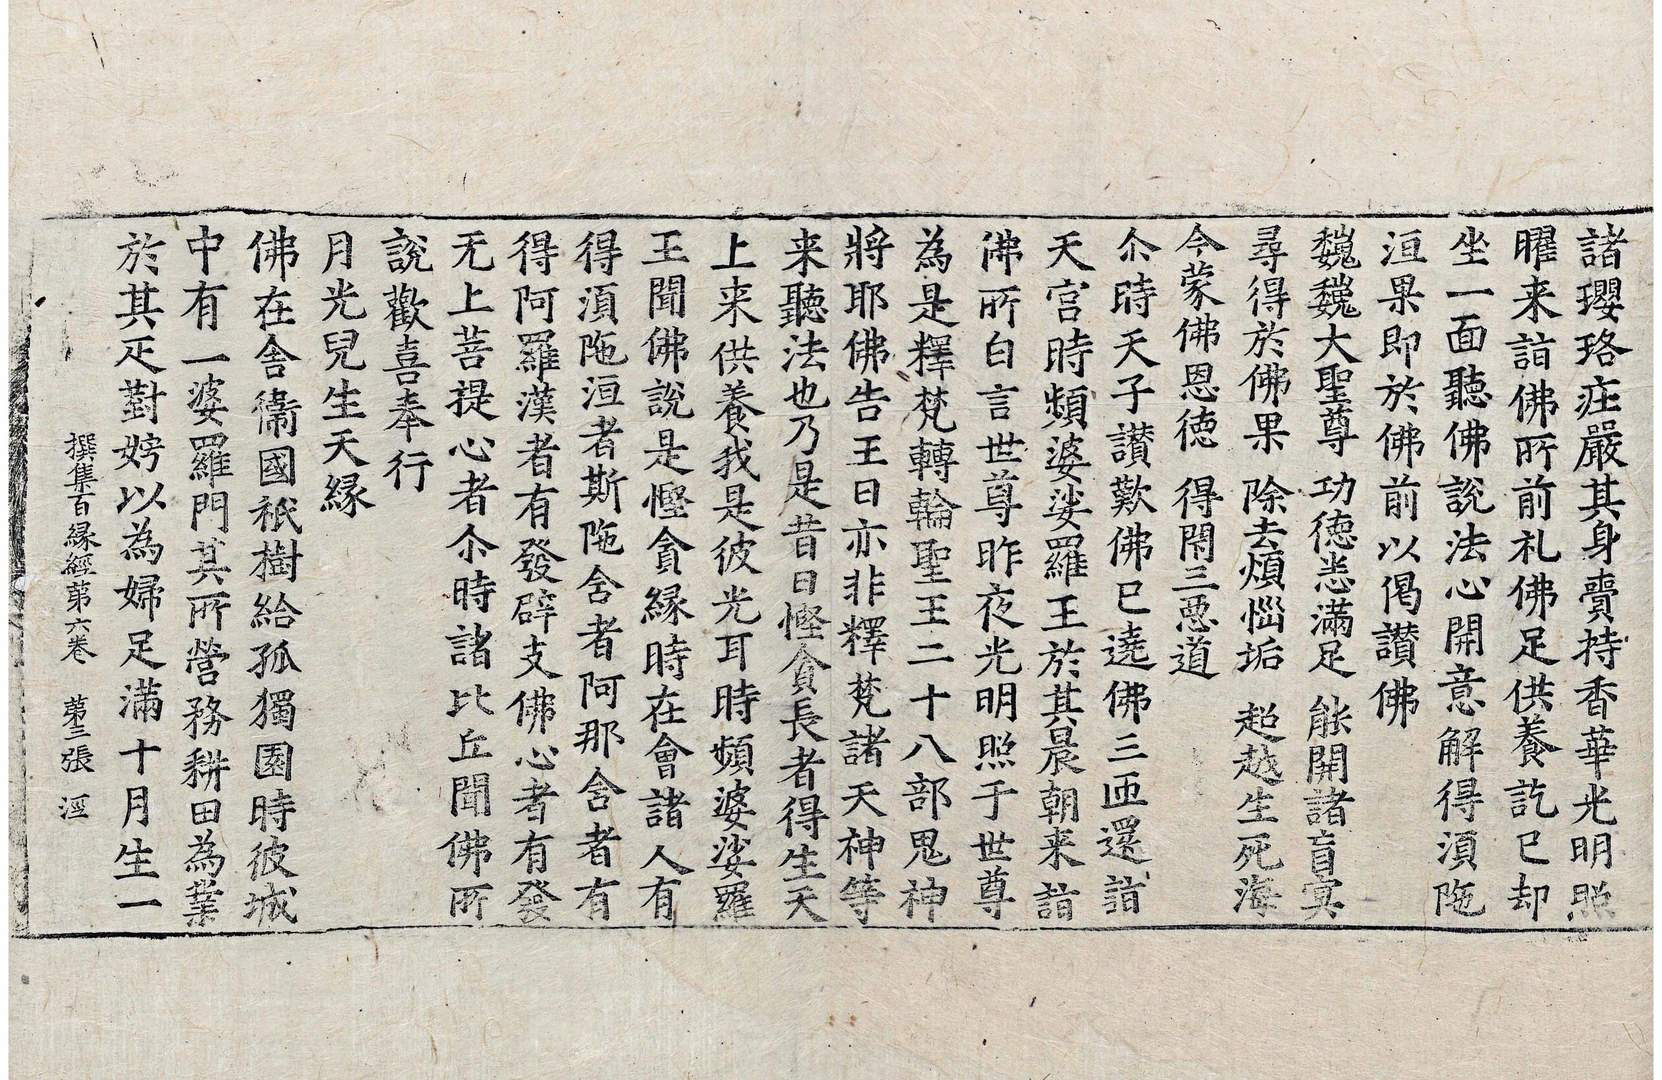 諸瓔珞庄嚴其身賷持香華光明照
曜来詣佛所前礼佛足供養訖已却
坐一面聽佛說法心開意解得湏陁
洹果即於佛前以偈讃佛
巍巍大聖尊 功德悉滿足 能開諸盲冥
尋得於佛果 除去煩惱垢 超越生死海
今蒙佛恩德 得閇三惡道
尒時天子讃歎佛已遶佛三迊還詣
天宫時頻婆娑羅王於其晨朝来詣
佛所白言世尊昨夜光明照于世尊
為是釋梵轉輪聖王二十八部鬼神
將耶佛告王曰亦非釋梵諸天神等
来聽法也乃是昔日慳貪長者得生天
上来供養我是彼光耳時頻婆娑羅
王聞佛說是慳貪緣時在會諸人有
得湏陁洹者斯陁含者阿那含者有
得阿羅漢者有發辟支佛心者有發
无上菩提心者尒時諸比丘聞佛所
說歡喜奉行
月光兒生天緣
佛在舎衞國祇樹給孤獨園時彼城
中有一婆羅門其所營務耕田為業
於其疋對娉以為婦足滿十月生一
撰集百緣經第六卷 第三張 淫